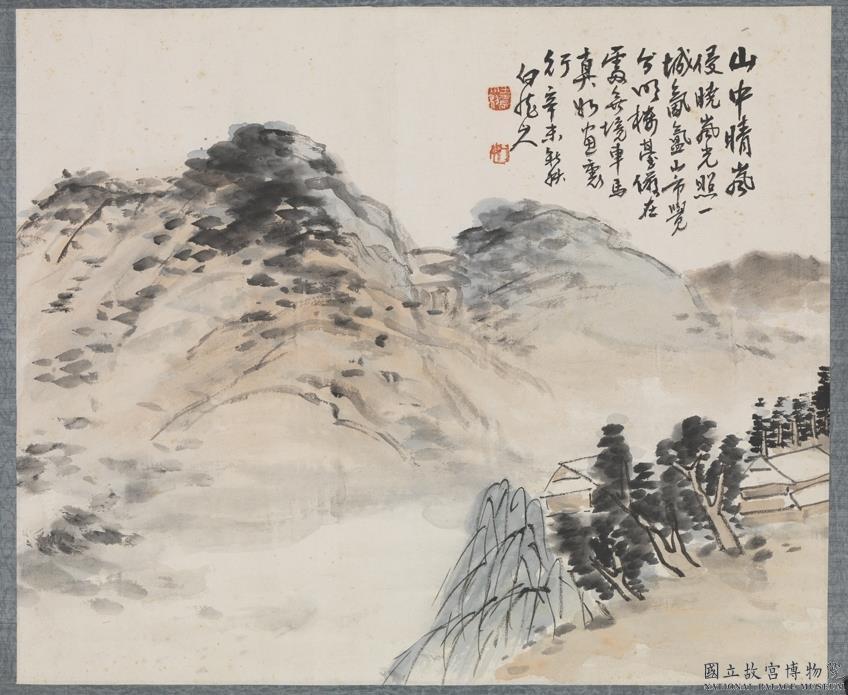 山中晴嵐
侵曉嵐光照一
城氤氳山市覺
分明樓臺儼在
虛無境車馬
真如畫裏
行辛未新秋
白龍山人
國立故宮博物院
NATIONAL PALACE MUSEUM